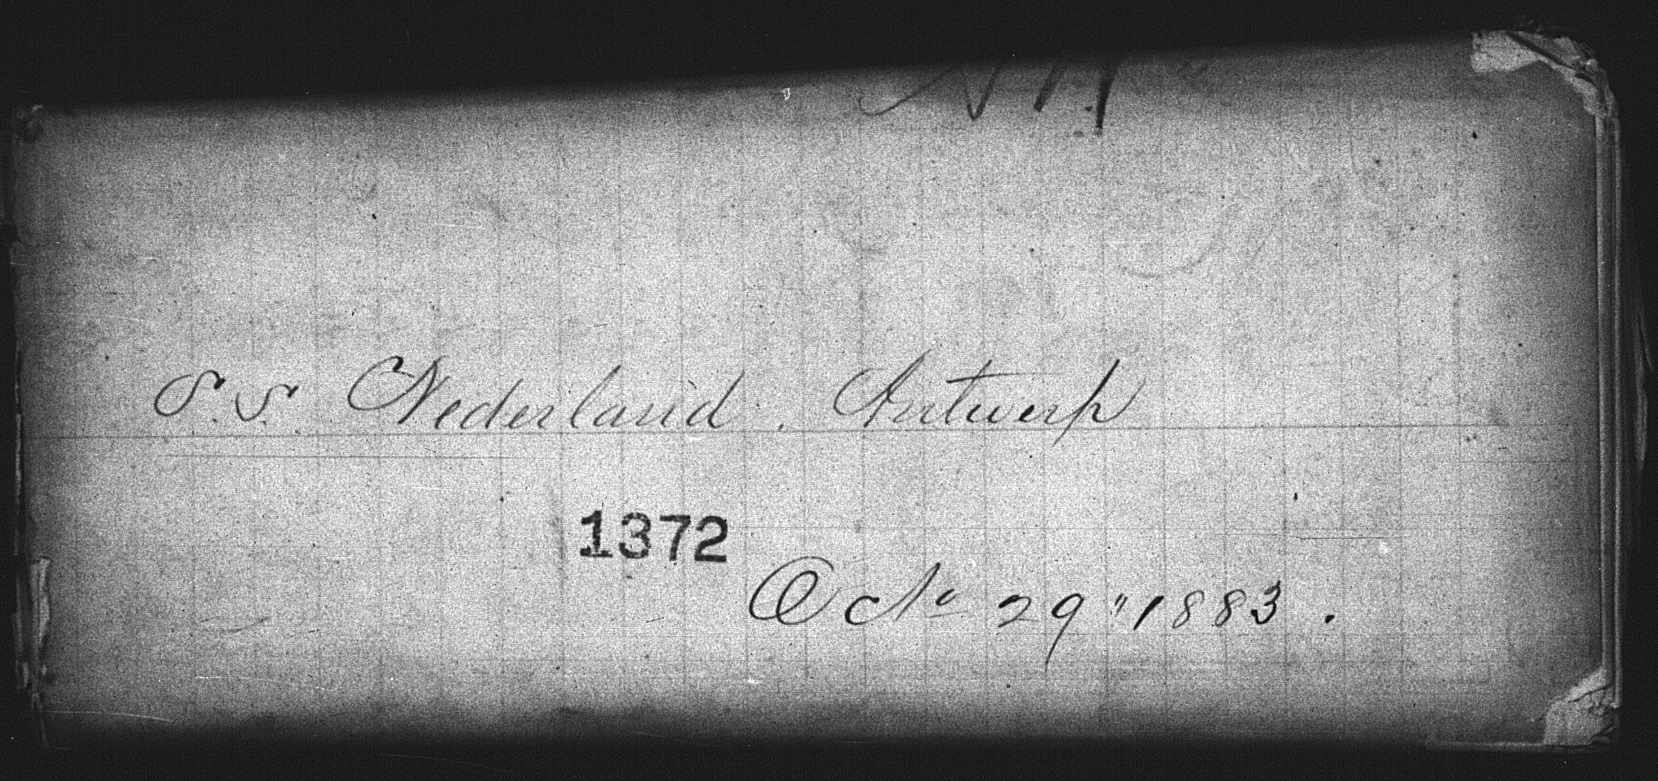 S.S. Nederland. Antwerp
1372
Octo 29" 1883.